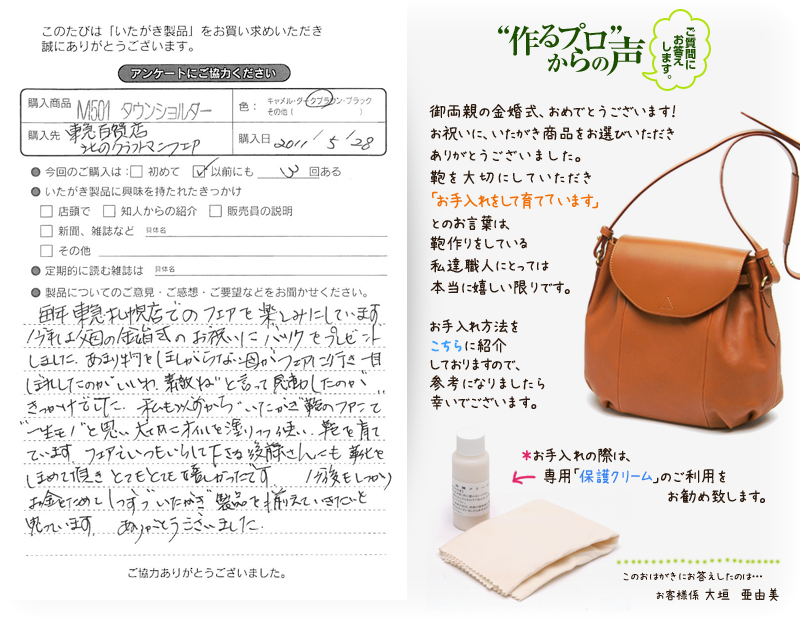 このたびは「いたがき製品」をお買い求めいただき
誠にありがとうございます。
アンケートにご協力ください
購入商品 M501 タウンショルダー
色： キャメル・ダークブラウン・ブラック
その他（ ）
購入先 東急百貨店
北のクラフトマンフェア
購入日 2011/5/28
● 今回のご購入は：□ 初めて ☑ 以前にも 3 回ある
● いたがき製品に興味を持たれたきっかけ
□ 店頭で □ 知人からの紹介 □ 販売員の説明
□ 新聞、雑誌など 具体名
□ その他
● 定期的に読む雑誌は 具体名
● 製品についてのご意見・ご感想・ご要望などをお聞かせください。
毎年東急札幌店でのフェアを楽しみにしています
今年は父母の金婚式のお祝いにバックをプレゼント
しました。あまり物をほしがらない母がフェアに行き一目
ぼれしたのが"いいわ、素敵ね"と言って感動したのが
きっかけでした。私も以前から"いたがき"鞄のファンで
"一生モノ"と思い大切にオイルを塗りつつ使い、鞄を育て
ています。フェアでいつもいらして下さる後藤さんにも
ほめて頂きとてもとても嬉しかったです。今後もしっかり
お金をためて1つずつ"いたがき"製品を揃えていきたいと
思っています。ありがとうございました。
ご協力ありがとうございました。
“作るプロ”
からの声
ご質問に
お答え
します。
御両親の金婚式、おめでとうございます！
お祝いに、いたがき商品をお選びいただき
ありがとうございました。
鞄を大切にしていただき
「お手入れをして育てています」
とのお言葉は、
鞄作りをしている
私達職人にとっては
本当に嬉しい限りです。
お手入れ方法を
こちらに紹介
しておりますので、
参考になりましたら
幸いでございます。
*お手入れの際は、
専用「保護クリーム」のご利用を
お勧め致します。
このおはがきにお答えしたのは…
お客様係 大垣 亜由美